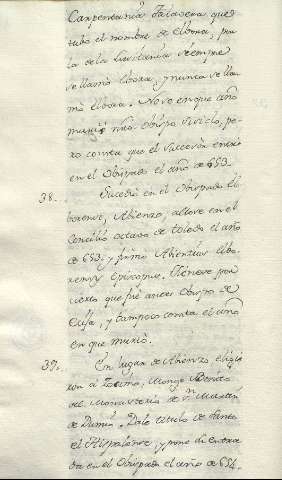 Carpentania Talavera que
tubo el nombre de Elbora, pues
la de la Lusitania siempre
se llamó Ebora, y nunca se lla-
mó Elbora. No se en que año
murió nřo Obispo Sivilo, pe-
ro consta que el succesor entró
en el Obispado el año de 653.
38.. Sucedió en el Obispado El-
borense, Abienzo, asiste en el
Concilio octavo de toledo el año
de 653. y firmó Abientius Elbo-
rensis Episcopus. Tienese por
cierto que fué antes Obispo de
y tampoco consta el año
en que murió.
39. En lugar de Abienzo eligie
ron á Zosimo, Monge Benito
del Monasterio de Sn Martin
de Dumio. Dale titulo de Santo
el Hispalense, y pone su entra
da en el Obispado el año de 656.